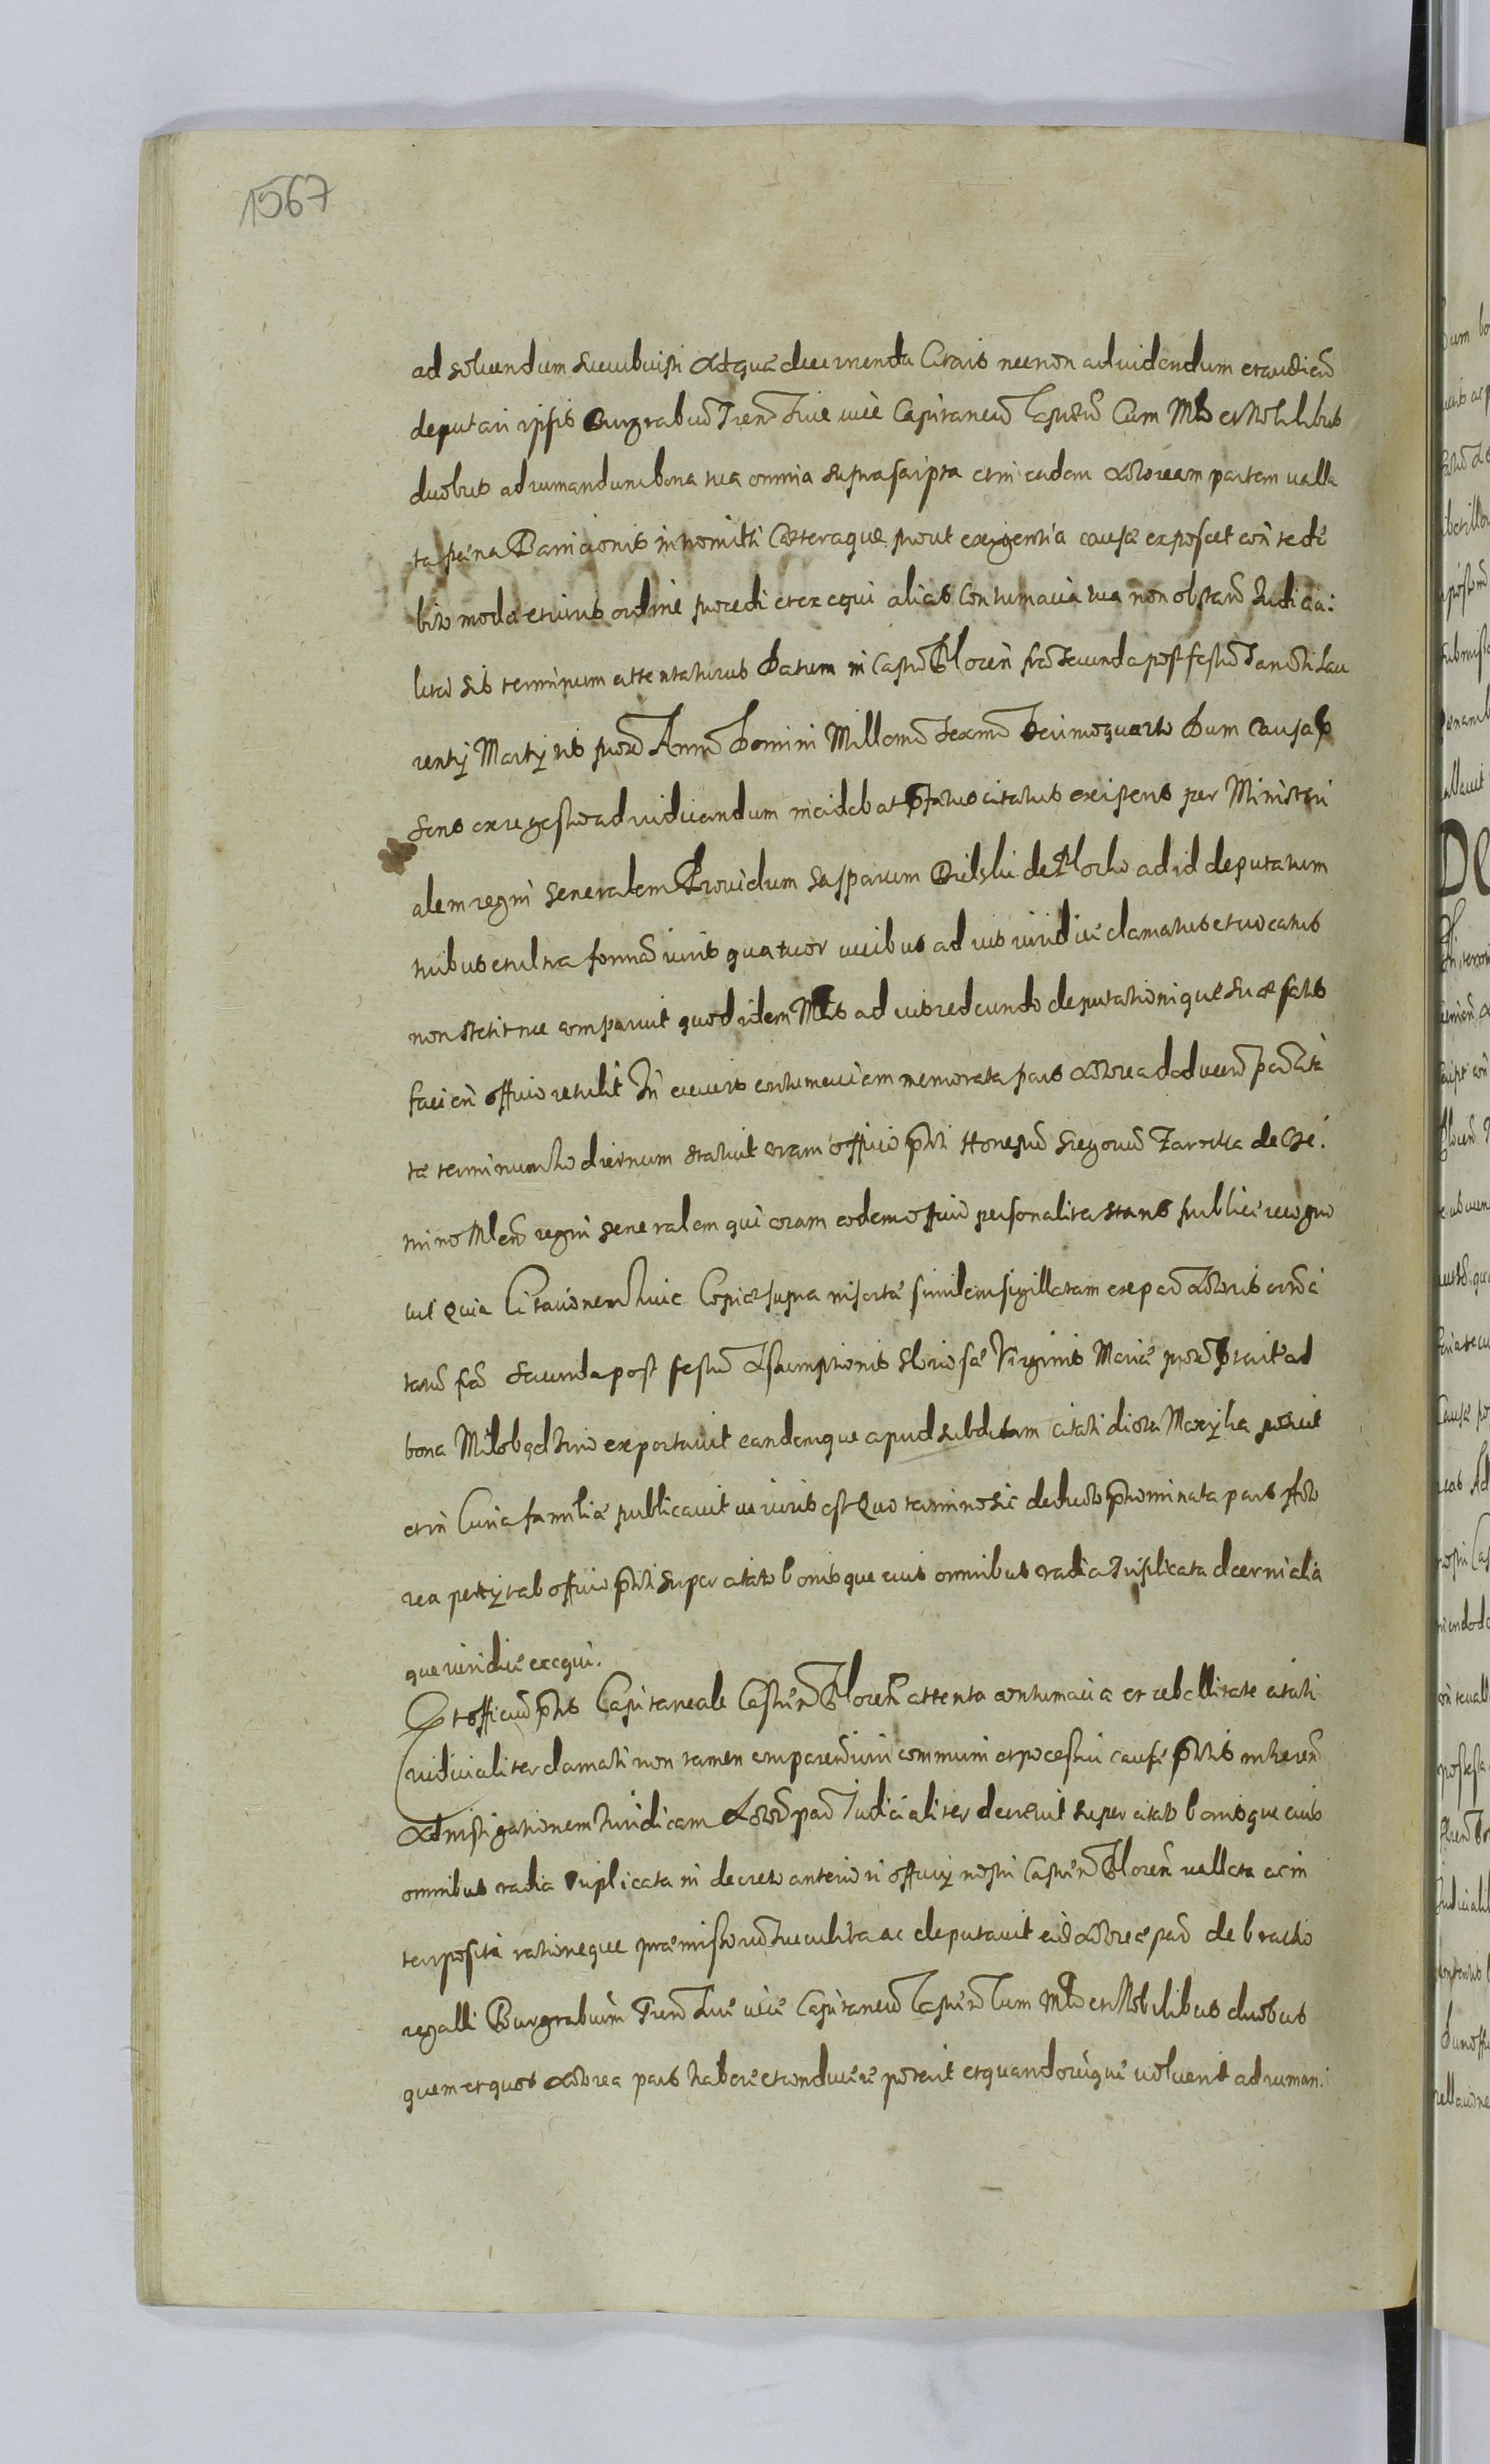 1567
ad soluendum succubuisti Adquæ decernenda Citaris necnon ad uidendum et audiend
deputari ipsis Burgrabiū Tren siue uice Capitaneū Castrēn Cum Mlo et Nobilibus
duobus ad uimandum bona tua omnia suprascripta et in eadem Actoream partem ualla
ta pæna Bannicionis intromitti Cæteraque prout exigentia causæ exposcet contra te de
bito modo et iuris ordine procedi et exequi alias Contumacia tua non obstan Iudicia:
liter sis terminum attentaturus Datum in Castro Plocen fer secunda post festū Sancti Lau
rentÿ Martyris prox Anno Domini Millemo Sexmo Decimoquarto Dum Causa p
sens ex regestro ad iudicandum incidebat pfatus citatus existens per Ministeri
alem regni Generalem Prouidum Gasparum Bielski de Plocko ad id deputatum
tribus et ultra formā iuris quatuor uicibus ad ius iuridice clamatus et uocatus
non stetit nec comparuit quod idem Mlis ad ius redeundo deputationique suæ satis
facien officio retulit In cuius contumaciam memorata pars Actorea ad docen pændita
te terminum hodiernum statuit coram officio pnti Honestū Gregoriū Zarocka de Cze:
mino Mlem regni generalem qui coram eodem officio personaliter stans publice recogno
uit Quia Citationem huic Copiæ supra insertæ similem sigillatam ex par Actoris
tarū fer Secunda post festū Assumptionis Gloriosæ Virginis Mariæ prox ptærit ad
bona Milobądzino exportauit eandemque apud subditum citati dictū Maxÿka posuit
et in Curia familiæ publicauit ut iuris est Quo termino sic deducto pnominata pars Acto
rea petÿt ab officio pnti super citato bonisque eius omnibus uadia triplicata decerni alia
que iuridice exequi.
Et officiū pns Capitaneale Castrēn Plocen attenta contumacia et rebellitate citati
iudicialiter clamati non tamen comparen iuri communi et processui causæ pntis inheren
Ad instigationem Iuridicam Actoreæ par Iudicialiter decreuit super citato bonisque eius
omnibus uadia triplicata in decreto anteriori officÿ nostri Castrēn Plocen uallata ac in
terposita rationeque præmissorū succubita ac deputauit eid Actoreæ par de brachio
regalli Burgrabium Tren siue uice Capitaneū Castrēn Cum Mlo et Nobilibus duobus
quem et quos Actorea pars habere et conducere poterit et quandocunque uoluerit ad uiman: